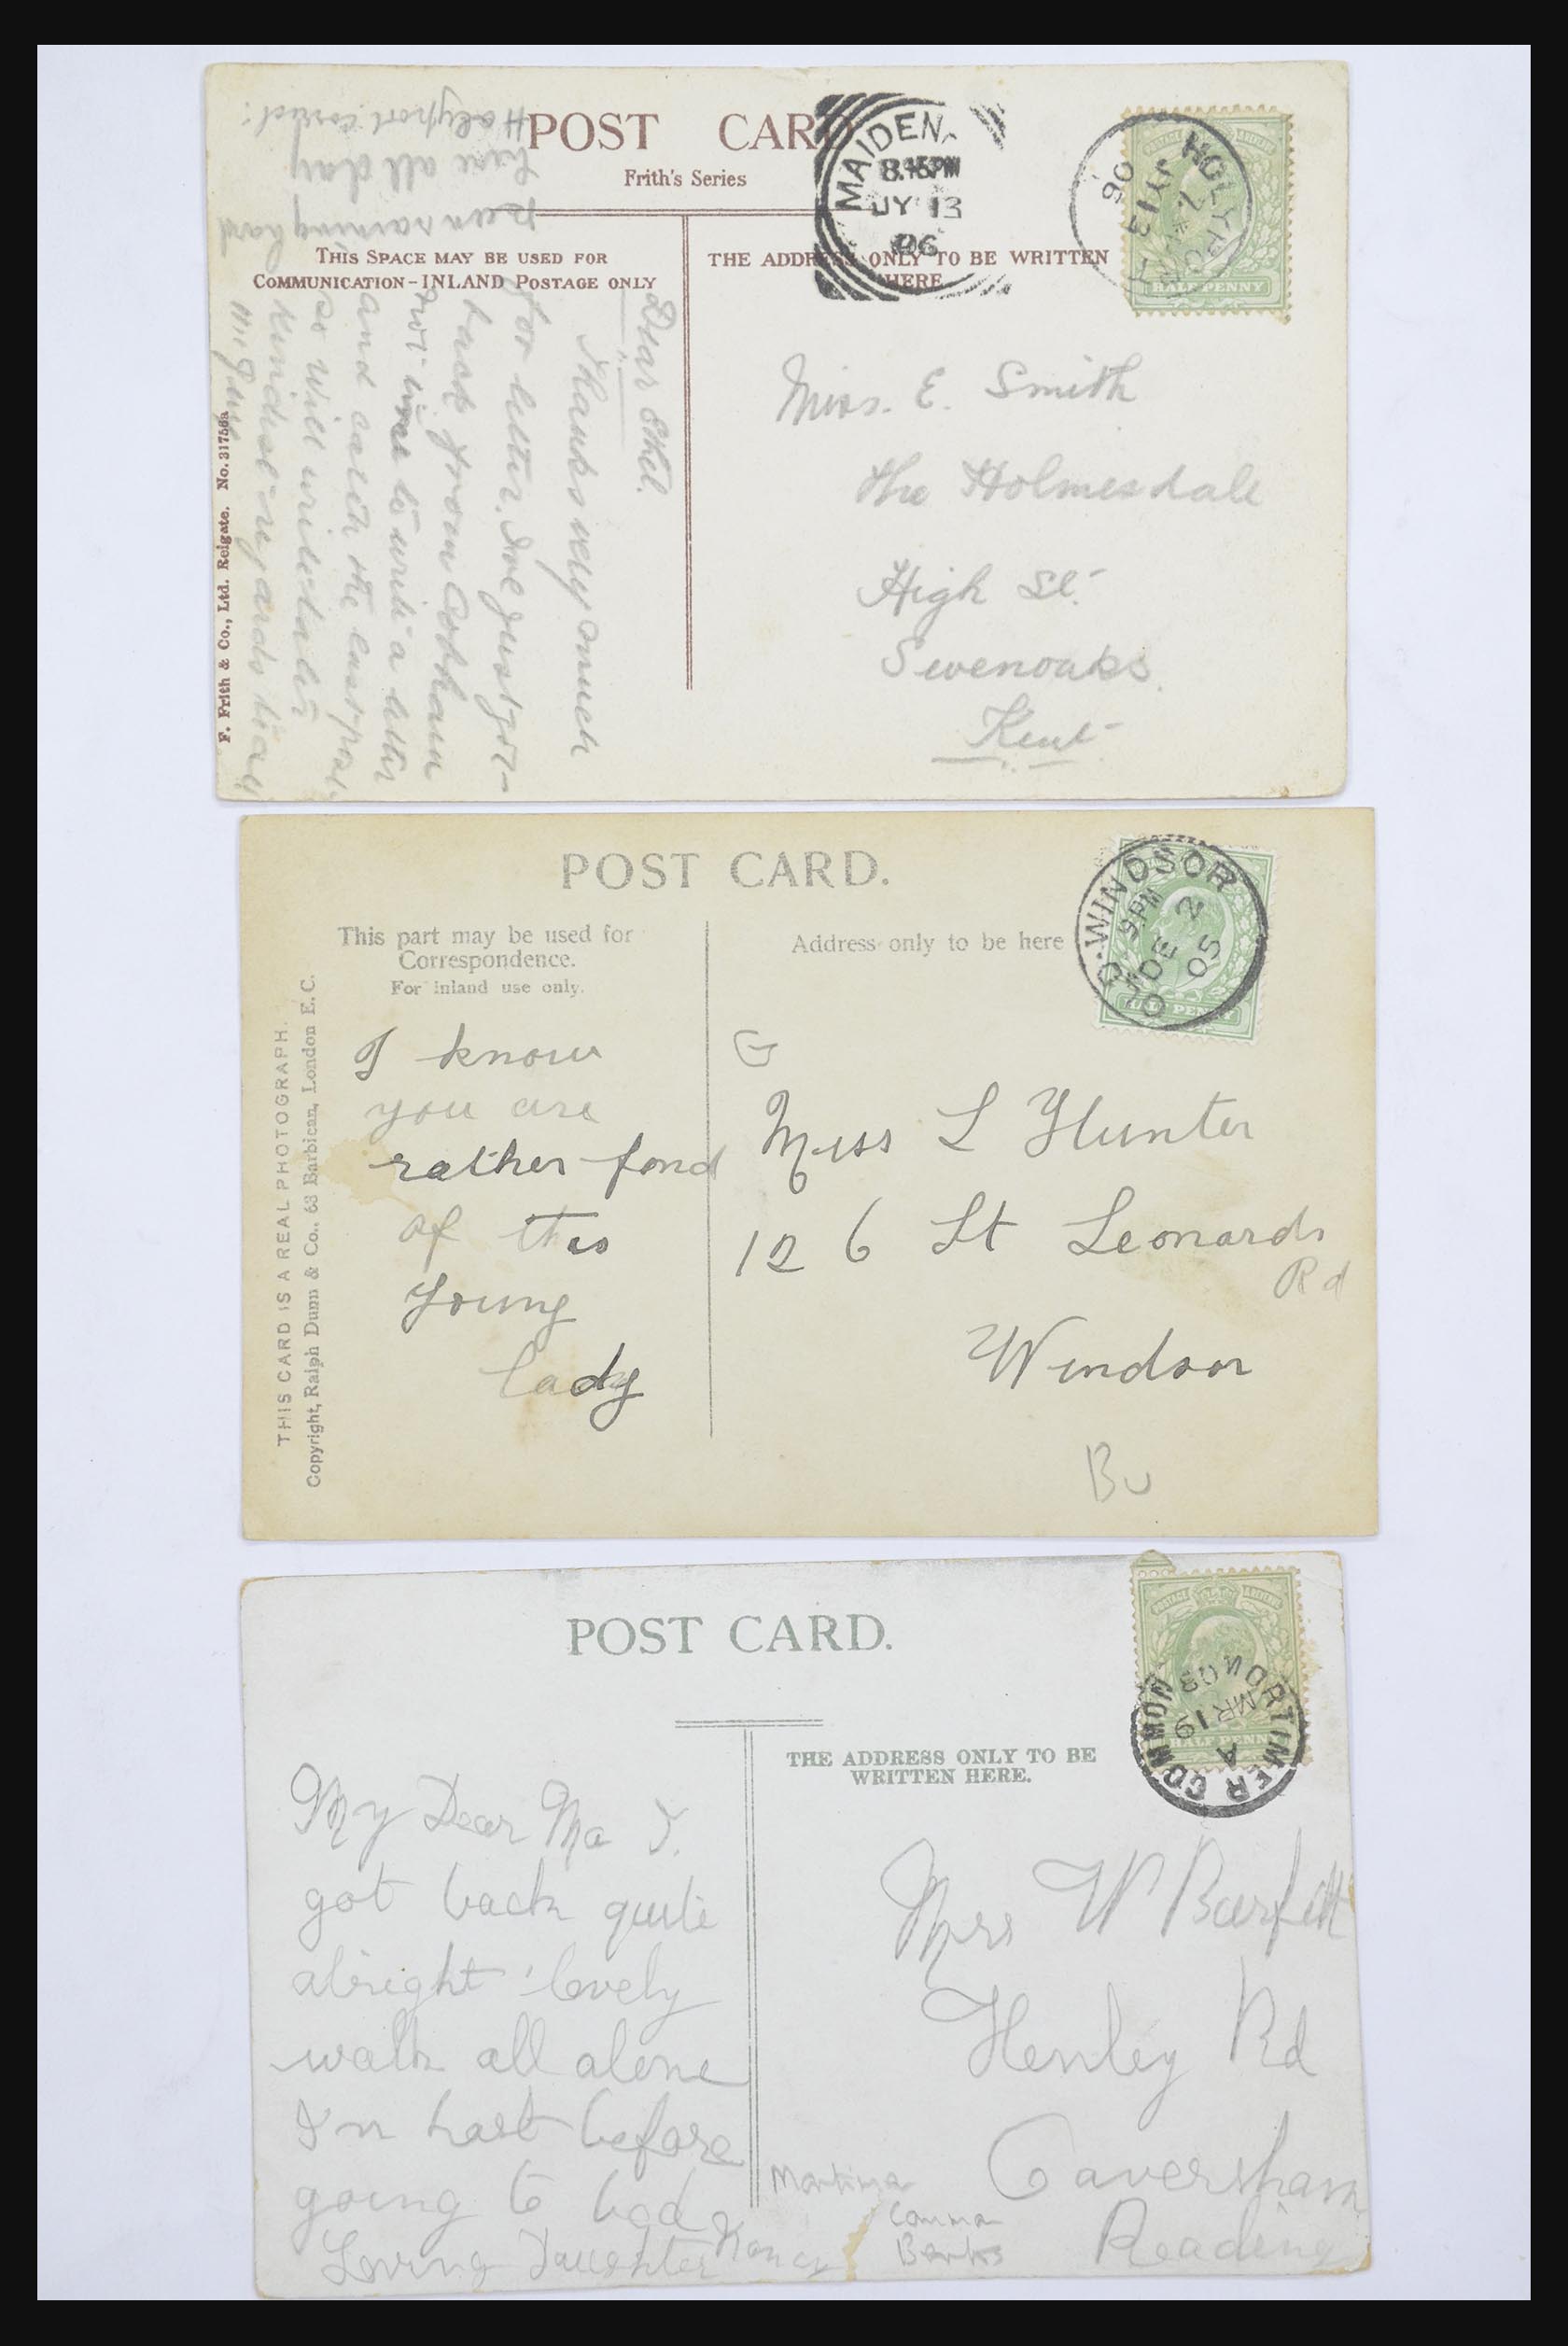 POST CARD
Frith's Series
THIS SPACE MAY BE USED FOR
COMMUNICATION-INLAND POSTAGE ONLY
THE ADDRESS ONLY TO BE WRITTEN
HERE
MAIDEN
8.45PM
JY 13
06
HOLYPORT
JY 13
06
HALFPENNY
Miss. E. Smith
The Holmesdale
High St.
Sevenoaks.
Kent
Dear Ethel.
Thanks very much
for letter. Ive just got
back from Cobham
not time to write a letter
and catch the last post
so will write later
Kindest regards
been raining hard
here all day
Holyport
F. Frith & Co., Ltd. Reigate. No. 31756a
POST CARD.
This part may be used for
Correspondence.
For inland use only.
Address only to be here
WINDSOR
9PM
DE 2
05
HALFPENNY
I know
you are
rather fond
of this
young
lady
G
Miss L Hunter
126 St Leonards
Rd
Windsor
Bu
THIS CARD IS A REAL PHOTOGRAPH.
Copyright, Ralph Dunn & Co., 63 Barbican, London E.C.
POST CARD.
THE ADDRESS ONLY TO BE
WRITTEN HERE.
POSTAGE & REVENUE
MORTIMER COMMON
A
MR 19
08
HALFPENNY
My Dear Ma I.
got back quite
alright lovely
walk all alone
going to bed
Loving Daughter Nancy
Mrs W Barfett
Henley Rd
Caversham
Reading
Common
Berks